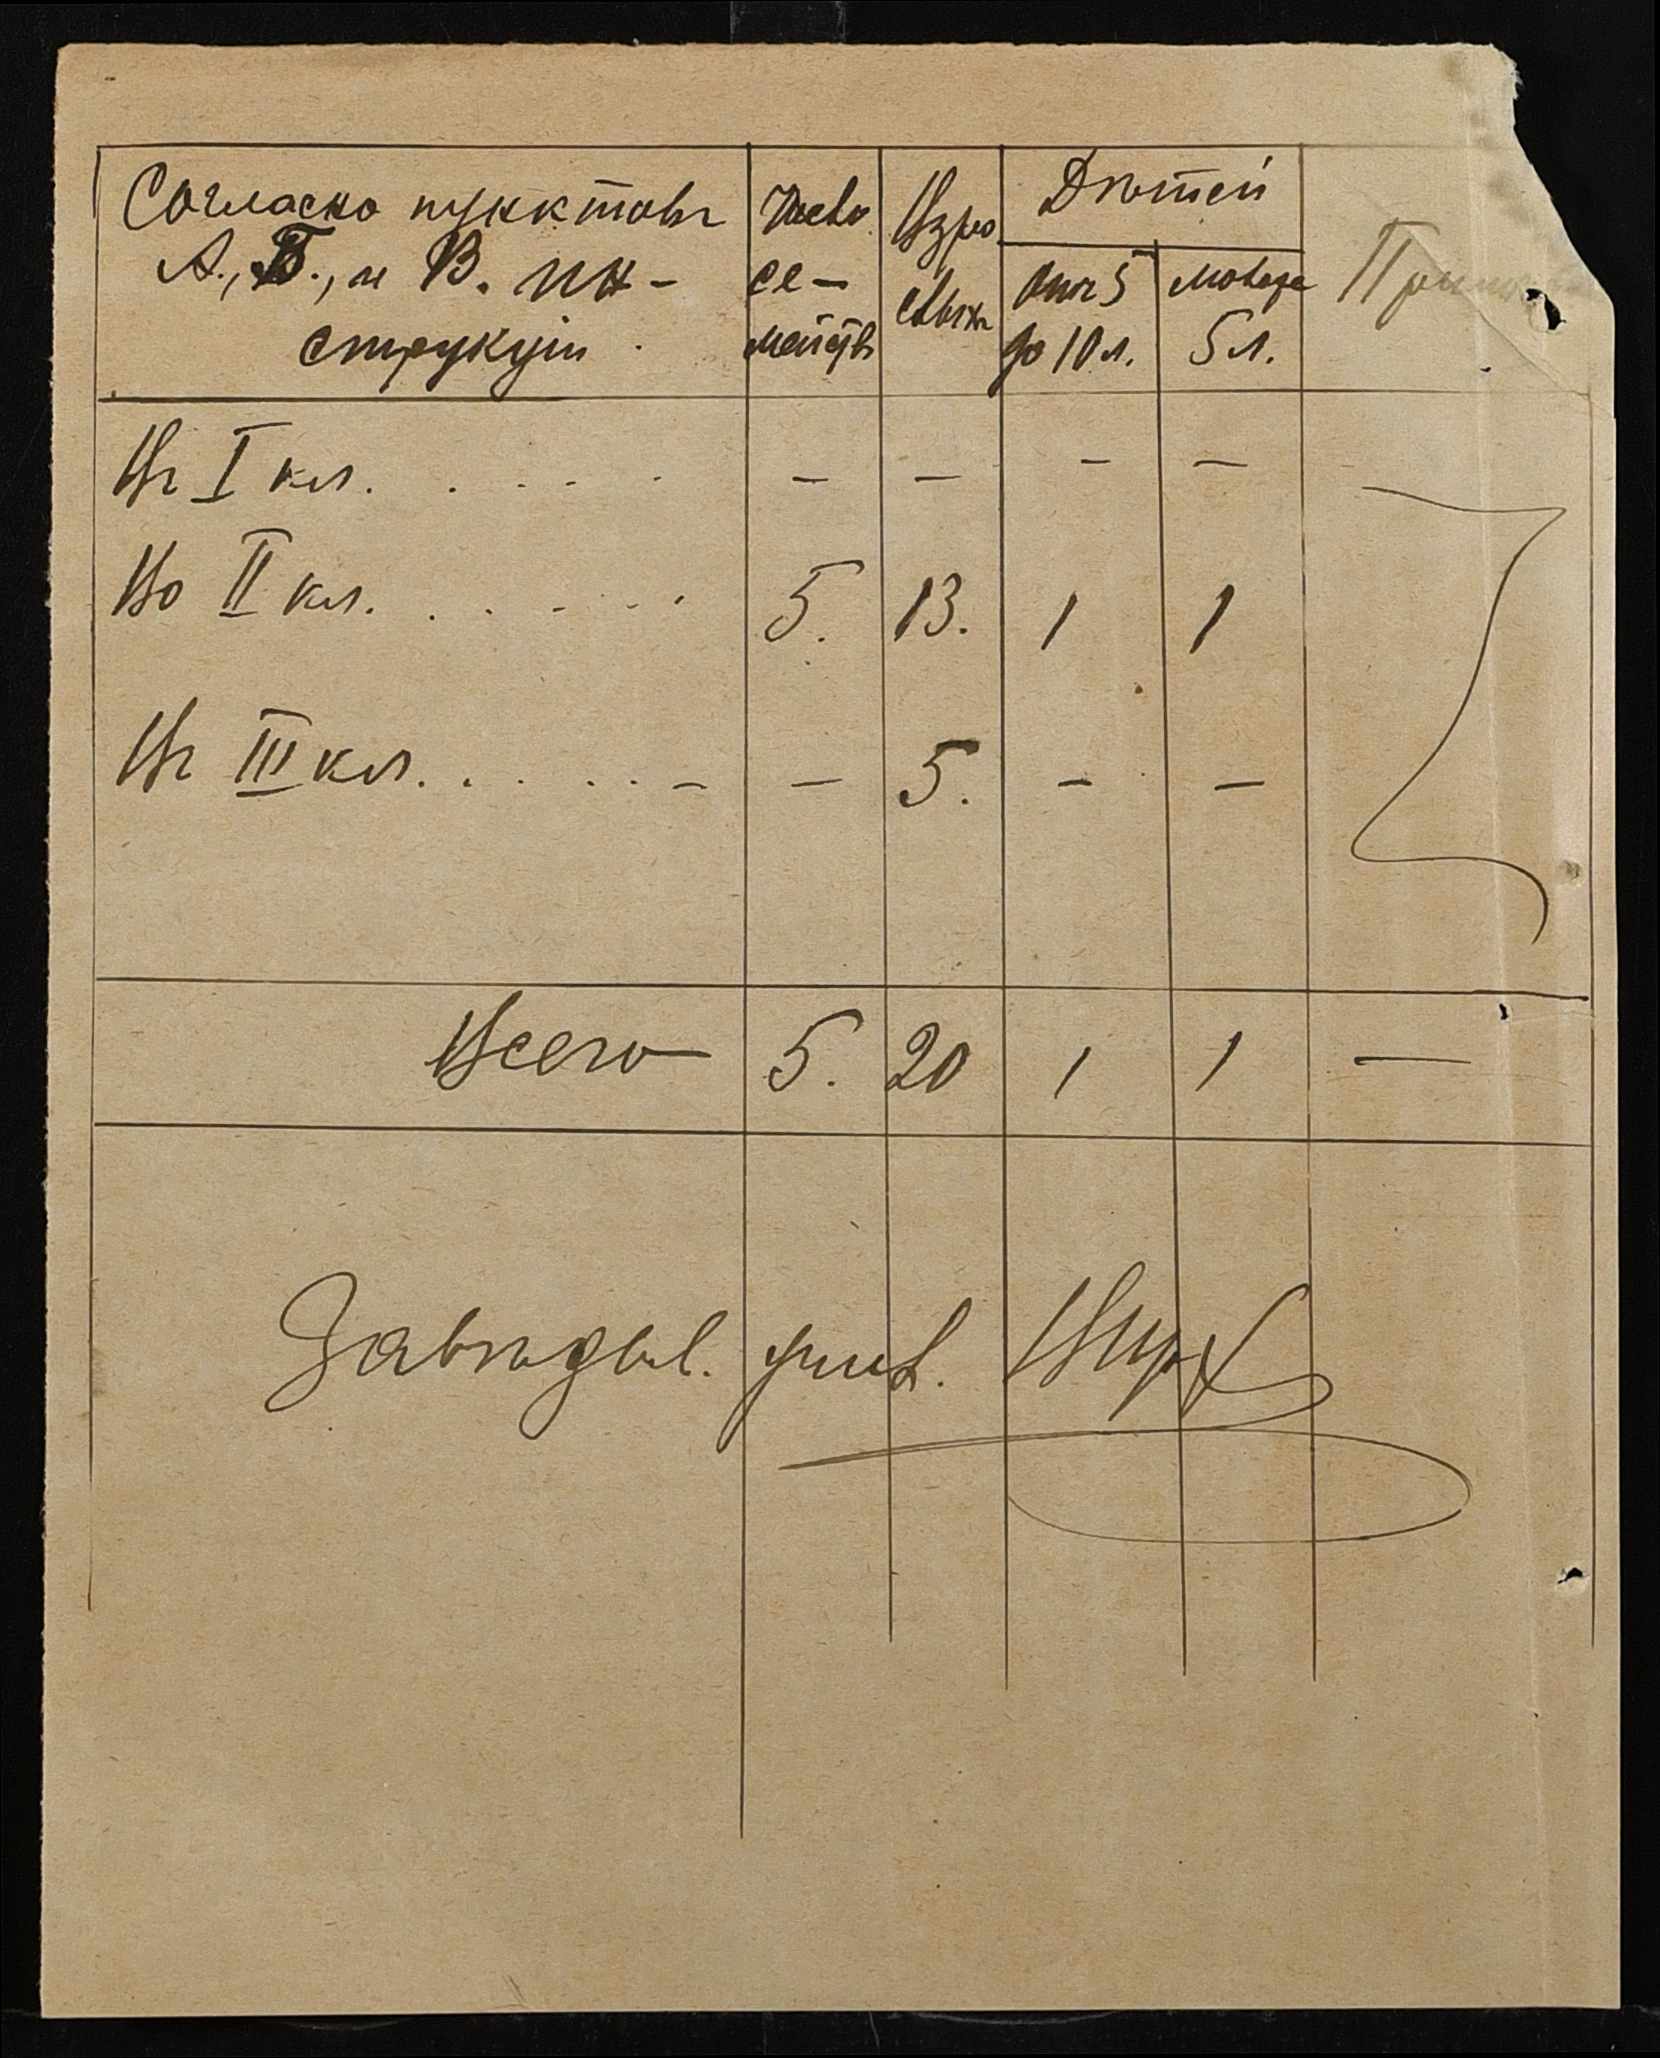 Согласно пунктовъ
А., Б., и В. ин-
струкціи
Число
се-
мействъ
Взро
слыхъ
Дѣтей
отъ 5
до 10 л.
моложе
5 л.
Въ I кл. . . . . . — — — —
Во II кл. . . . . . 5. 13. 1 1
Въ III кл. . . . . . — — 5. — —
Всего — 5. 20 1 1 —
Завѣдыв.